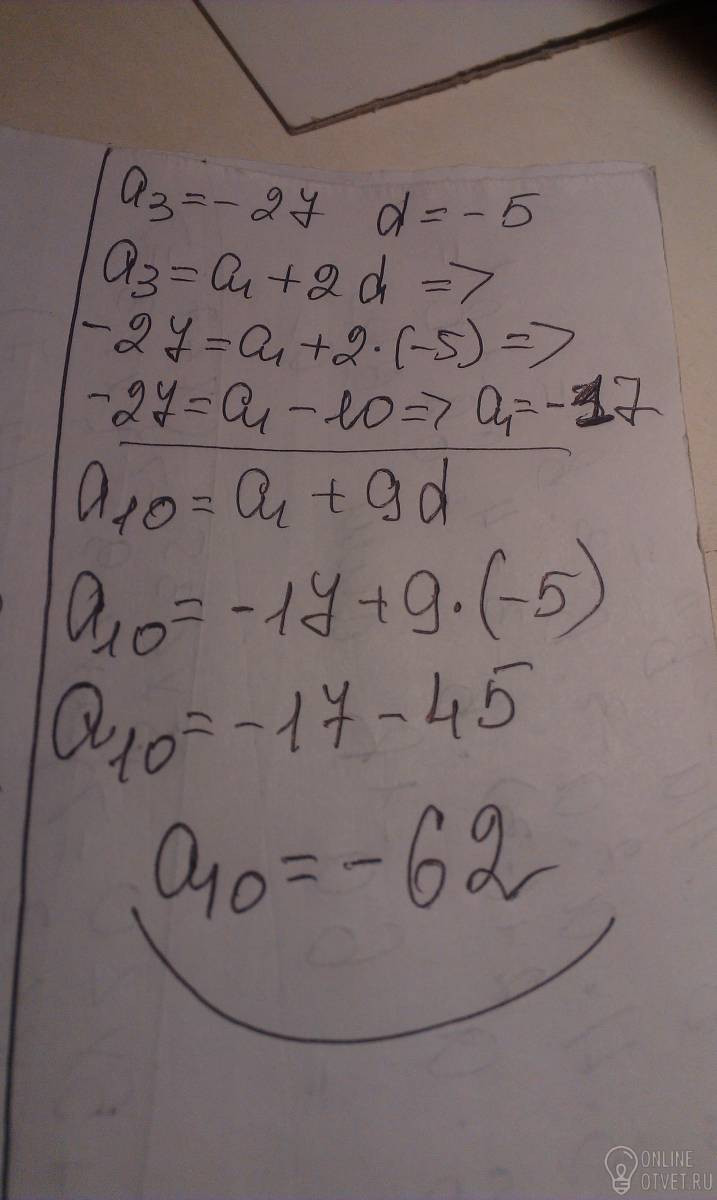 a₃ = - 27 d = - 5
a₃ = a₁ + 2d =>
- 27 = a₁ + 2 · (-5) =>
- 27 = a₁ - 10 => a₁ = - 17
a₁₀ = a₁ + 9d
a₁₀ = - 17 + 9 · (-5)
a₁₀ = - 17 - 45
a₁₀ = - 62
ONLINE
OTVET.RU